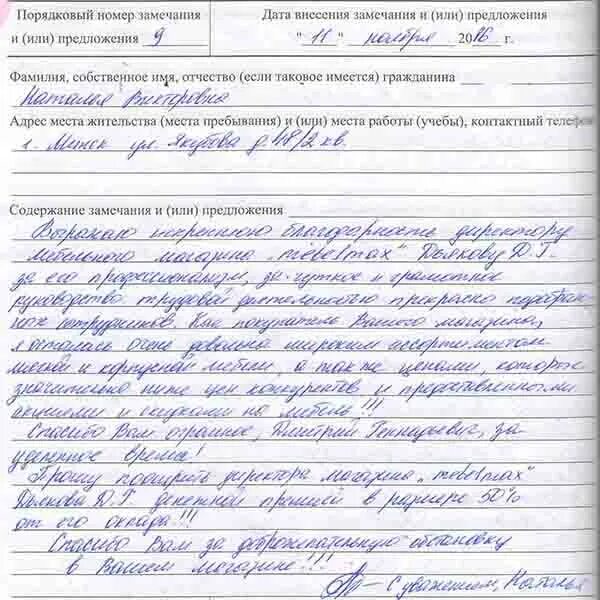 Порядковый номер замечания
и (или) предложения 9
Дата внесения замечания и (или) предложения
"11" ноября 2016 г.
Фамилия, собственное имя, отчество (если таковое имеется) гражданина
Наталья Викторовна
Адрес места жительства (места пребывания) и (или) места работы (учебы), контактный телефо
г. Минск ул. Якубова д. 48/2 кв.
Содержание замечания и (или) предложения
Выражаю искреннюю благодарность директору
мебельного магазина „mebelmax" Дьякову Д.Г.
за его профессионализм, за чуткое и грамотное
руководство трудовой деятельностью прекрасно подобран-
ных сотрудников. Как покупатель Вашего магазина,
я осталась очень довольна широким ассортиментом
мягкой и корпусной мебели, а также ценами, которые
значительно ниже цен конкурентов и предоставленными
акциями и скидками на мебель!!!
Спасибо Вам огромное, Дмитрий Геннадьевич, за
уделенное время!
Прошу поощрить директора магазина „mebelmax"
Дьякова Д.Г. денежной премией в размере 50%
от его оклада!!!
Спасибо Вам за доброжелательную обстановку
в Вашем магазине!!!
С уважением, Наталья